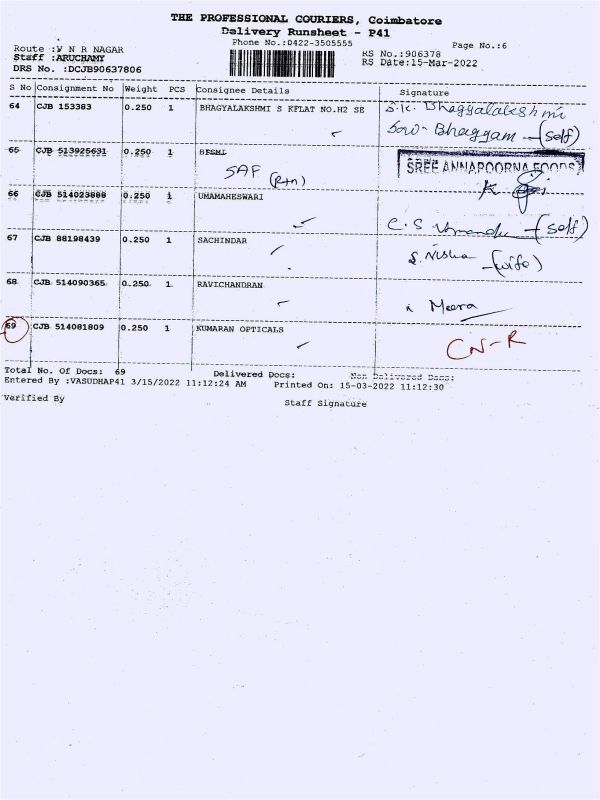 THE PROFESSIONAL COURIERS, Coimbatore
Delivery Runsheet - P41
Phone No.:0422-3505555
Page No.:6
Route :V N R NAGAR
Staff :ARUCHAMY
DRS No. :DCJB90637806
RS No.:906378
RS Date:15-Mar-2022
S No Consignment No Weight PCS Consignee Details Signature
64 CJB 153383 0.250 1 BHAGYALAKSHMI S KFLAT NO.H2 SE S.K. Bhaggalakshmi
Bhaggam - (self)
65 CJB 513925631 0.250 1 SREE ANNAPOORNA FOODS
SAF (Rtn)
66 CJB 514023888 0.250 1 UMAMAHESWARI
C.S - (self)
67 CJB 88198439 0.250 1 SACHINDAR S. Nisha - (wife)
68 CJB 514090365 0.250 1 RAVICHANDRAN
Meera
69 CJB 514081809 0.250 1 KUMARAN OPTICALS CN-R
Total No. Of Docs: 69 Delivered Docs: Non Delivered Docs:
Entered By :VASUDHAP41 3/15/2022 11:12:24 AM Printed On: 15-03-2022 11:12:30
Verified By Staff Signature